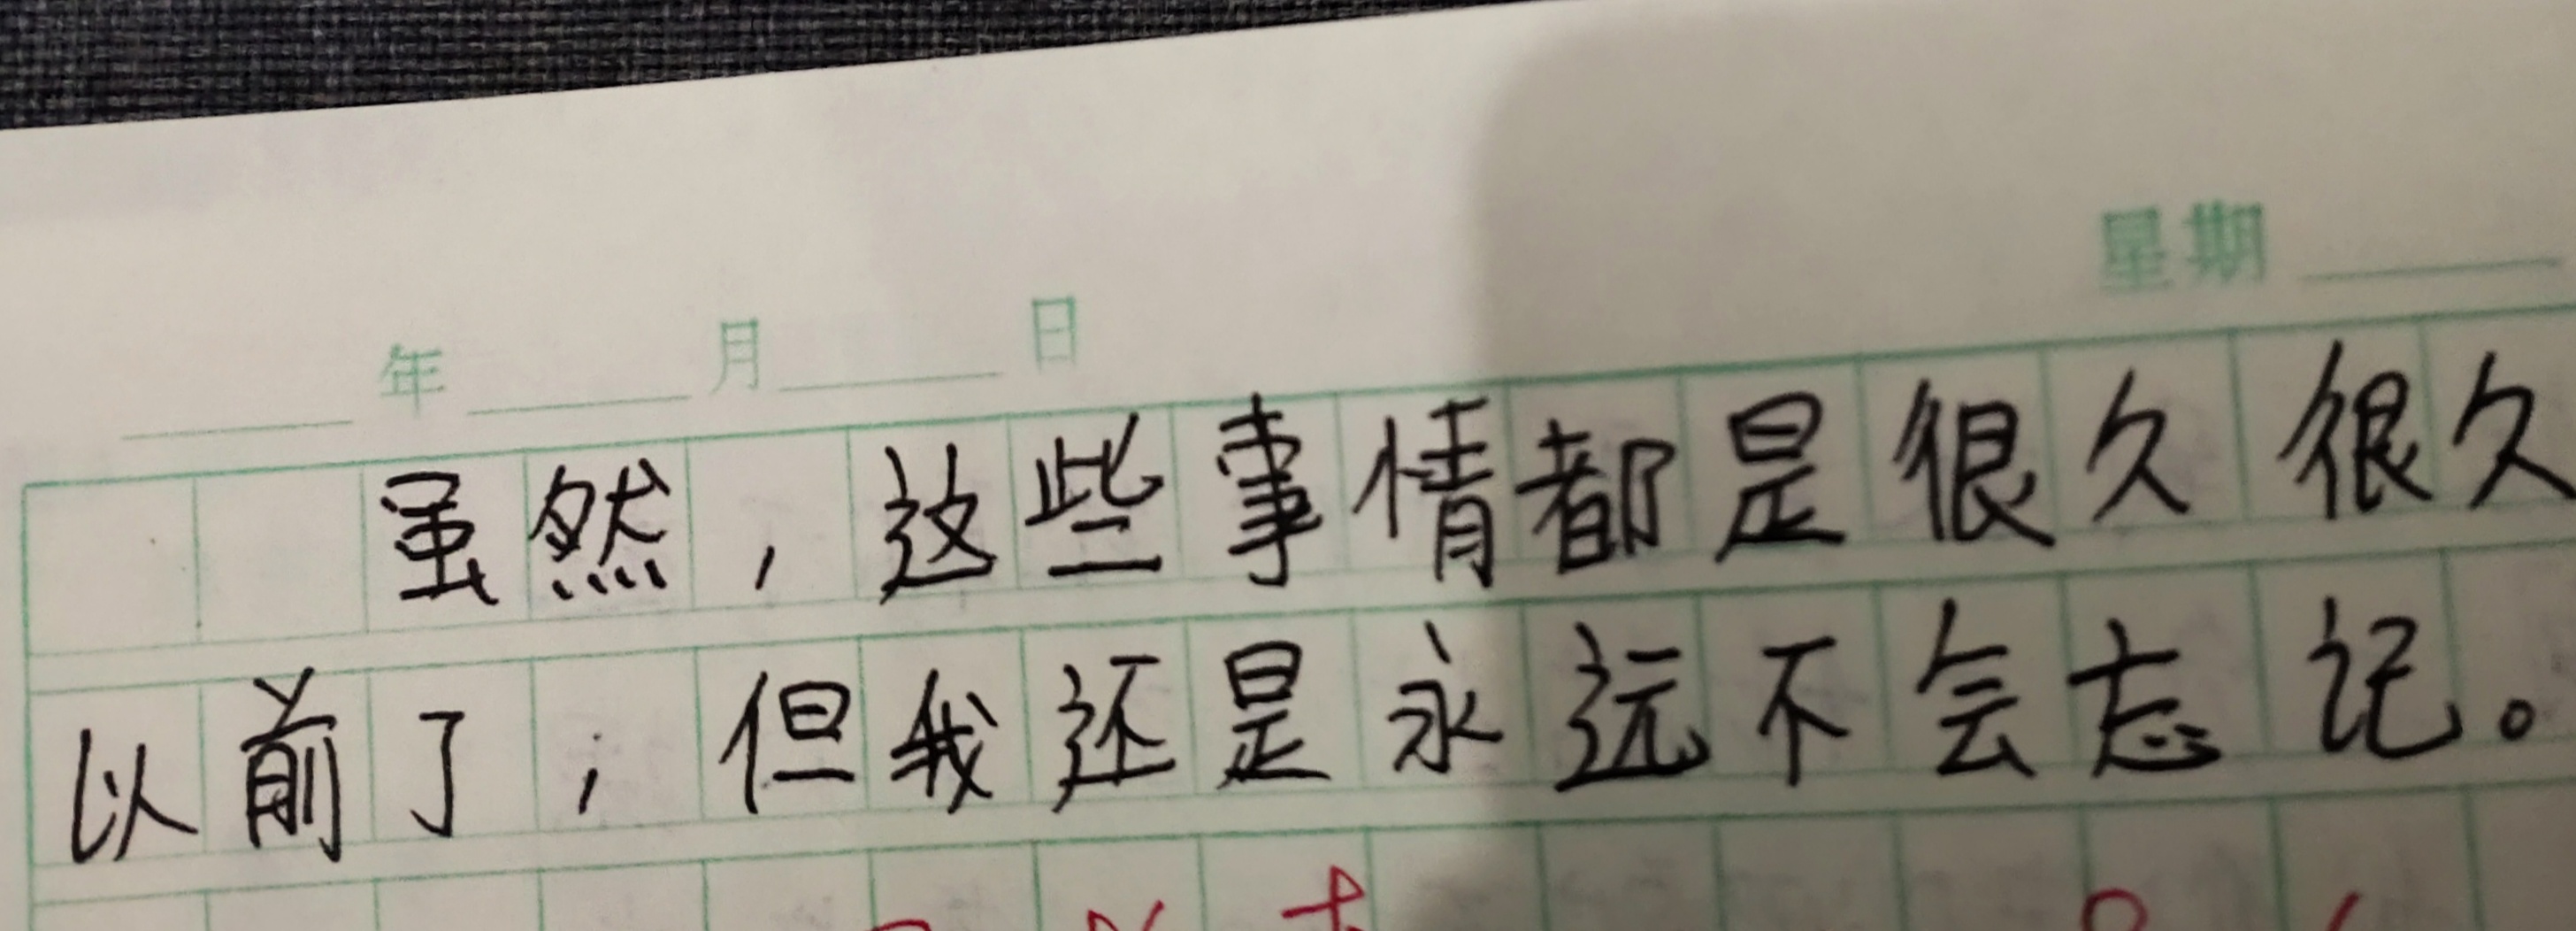 星期
年 月 日
虽然，这些事情都是很久很久
以前了，但我还是永远不会忘记。